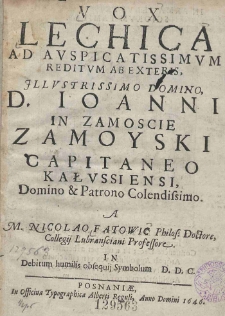 VOX
LECHICA
AD AVSPICATISSIMVM
REDITVM AB EXTERIS,
ILLVSTRISSIMO DOMINO,
D. IOANNI
IN ZAMOSCIE
ZAMOYSKI
CAPITANEO
KAŁVSSIENSI,
Domino & Patrono Colendissimo.
A
M. NICOLAO ZATOWIC Philos. Doctore,
Collegij Lubransciani Professore.
IN
Debitum humilis obsequij Symbolum D. D. C.
POSNANIÆ,
In Officina Typographica Alberti Reguli, Anno Domini 1646.
129563